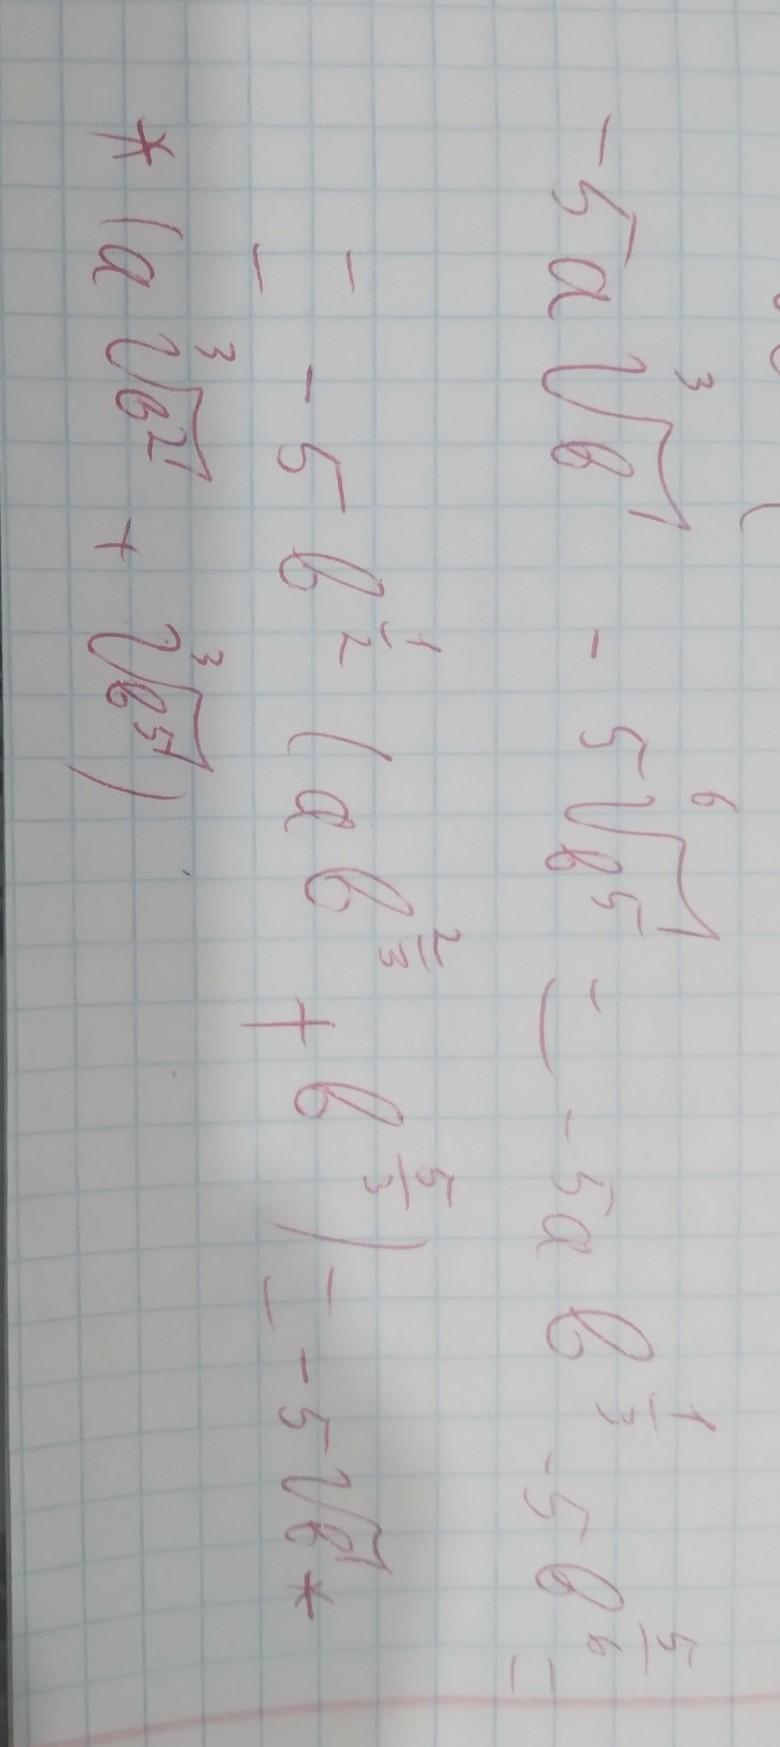 -5a∛b - 5⁶√b⁵ = -5ab^(1/3) - 5b^(5/6) =
= -5b^(1/2) (ab^(2/3) + b^(5/3)) = -5√b *
* (a∛b² + ∛b⁵)